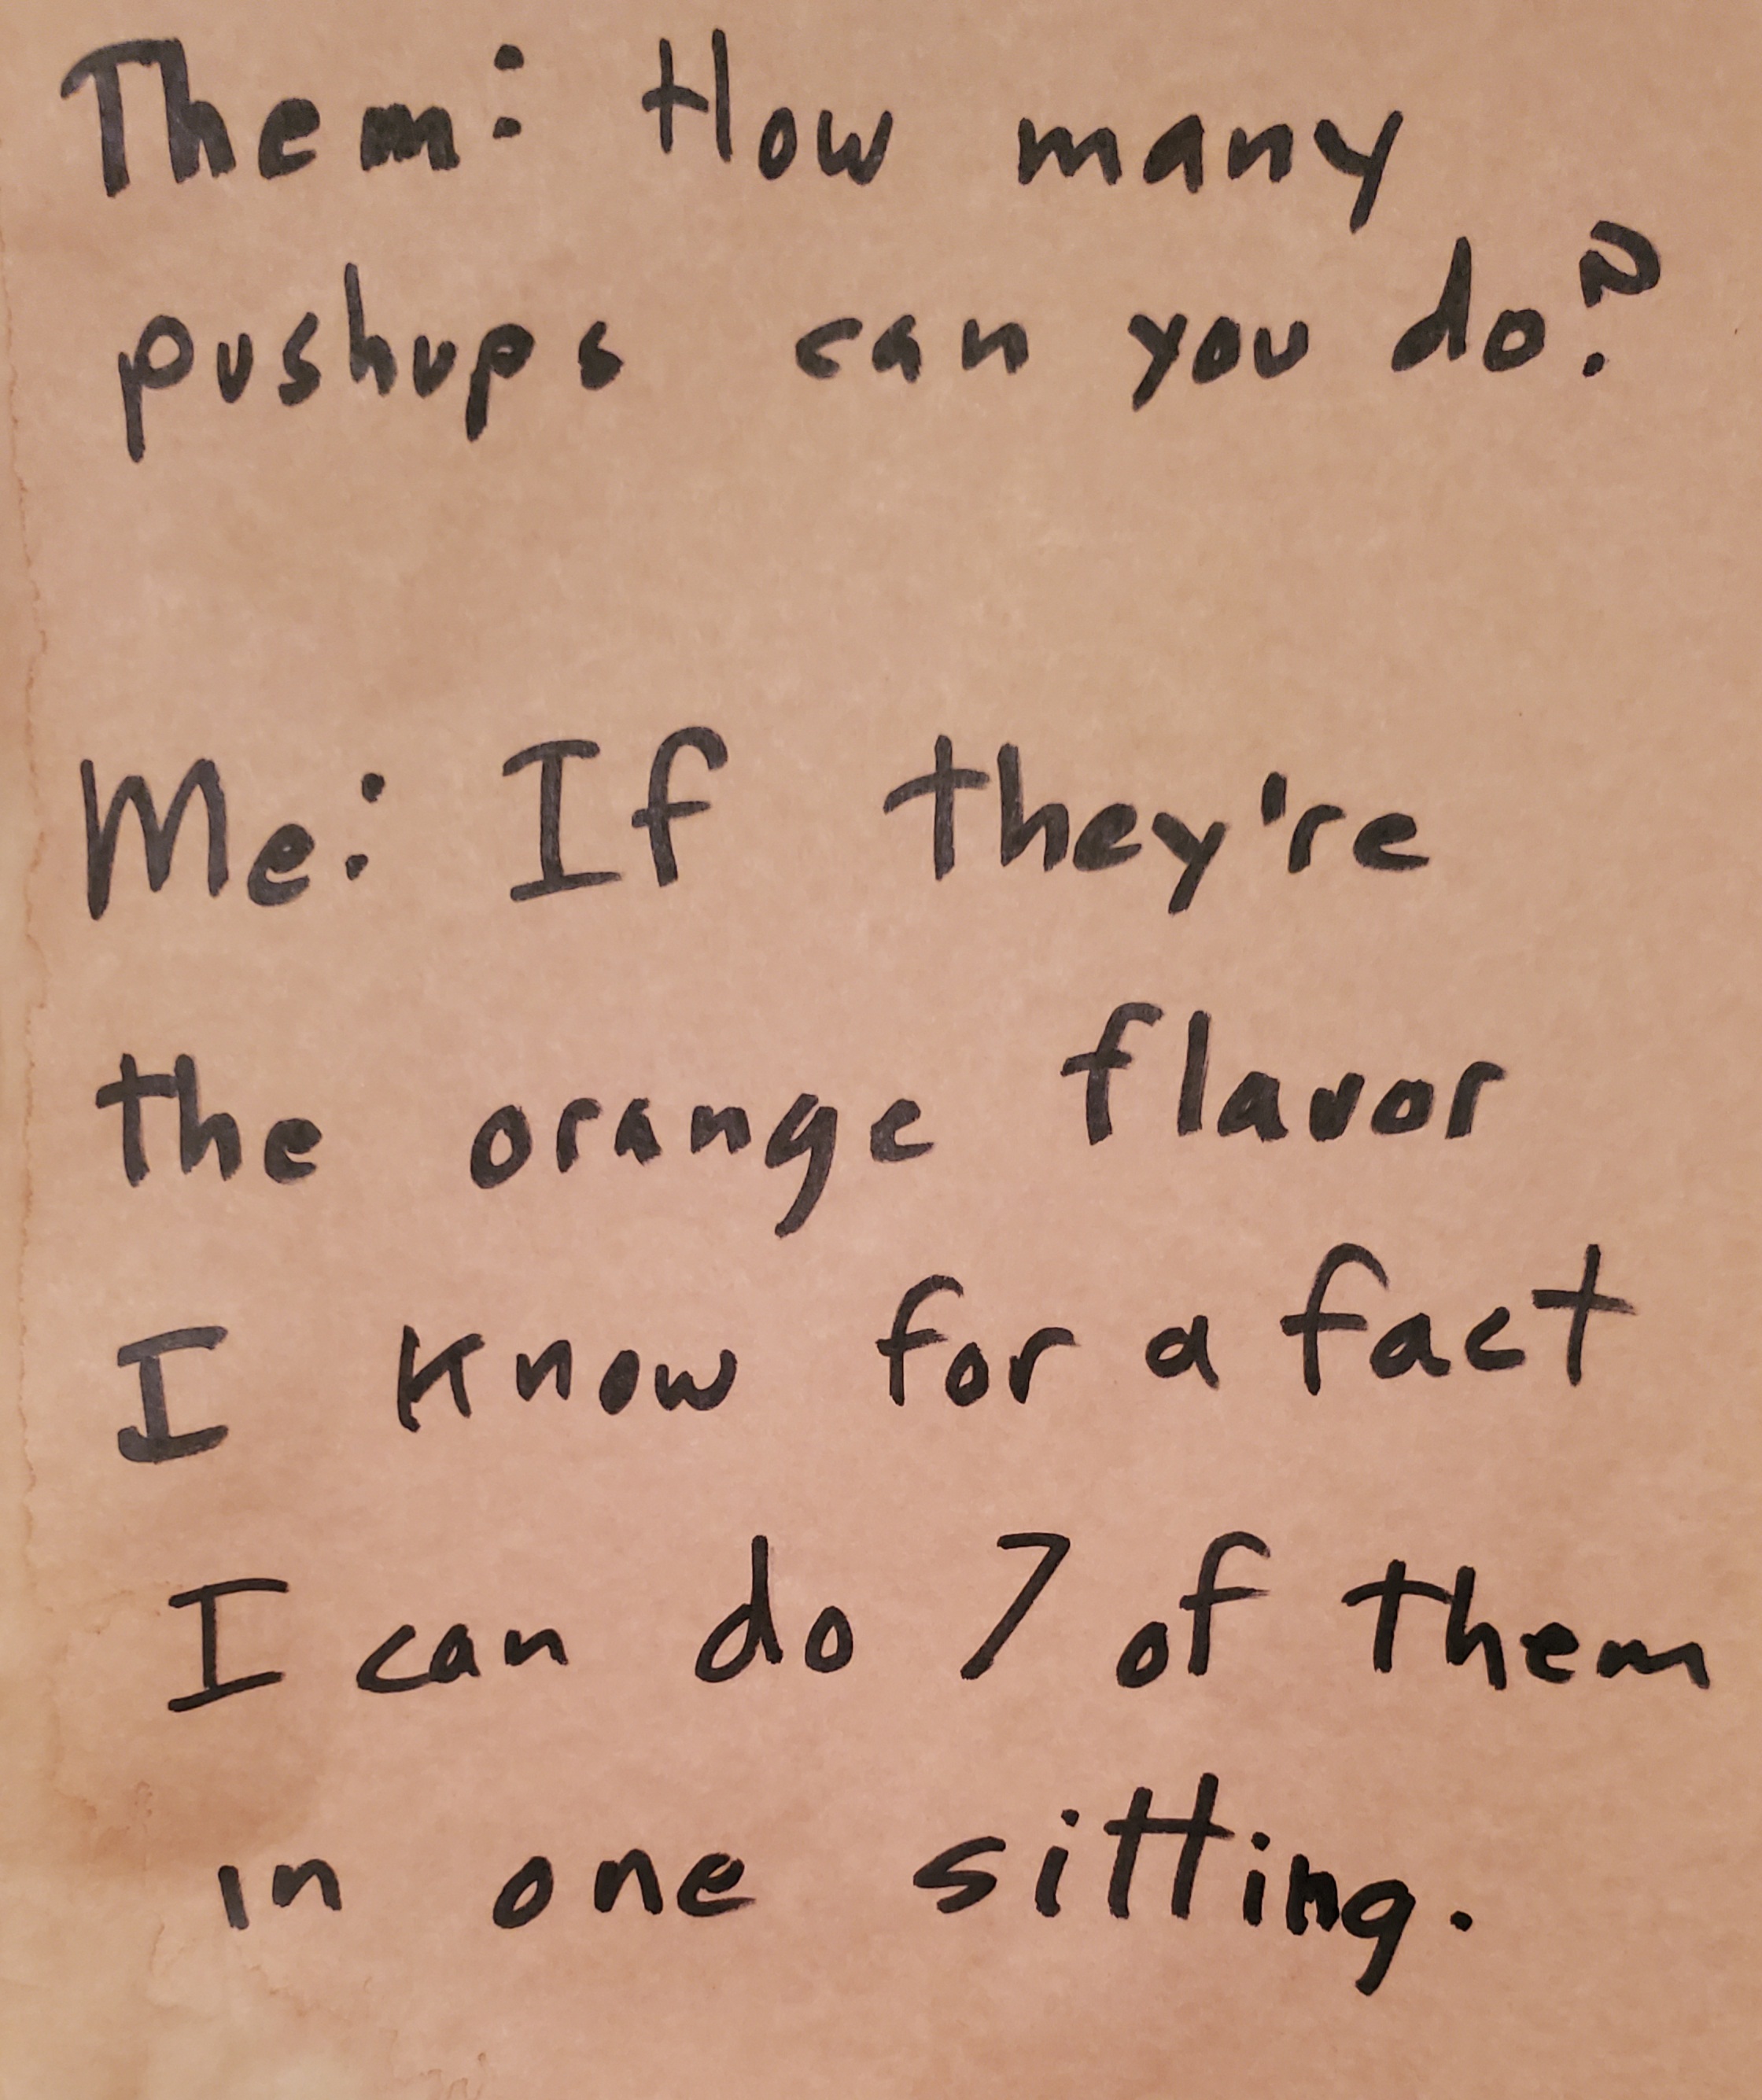 Them: How many
pushups can you do?
Me: If they're
the orange flavor
I know for a fact
I can do 7 of them
in one sitting.